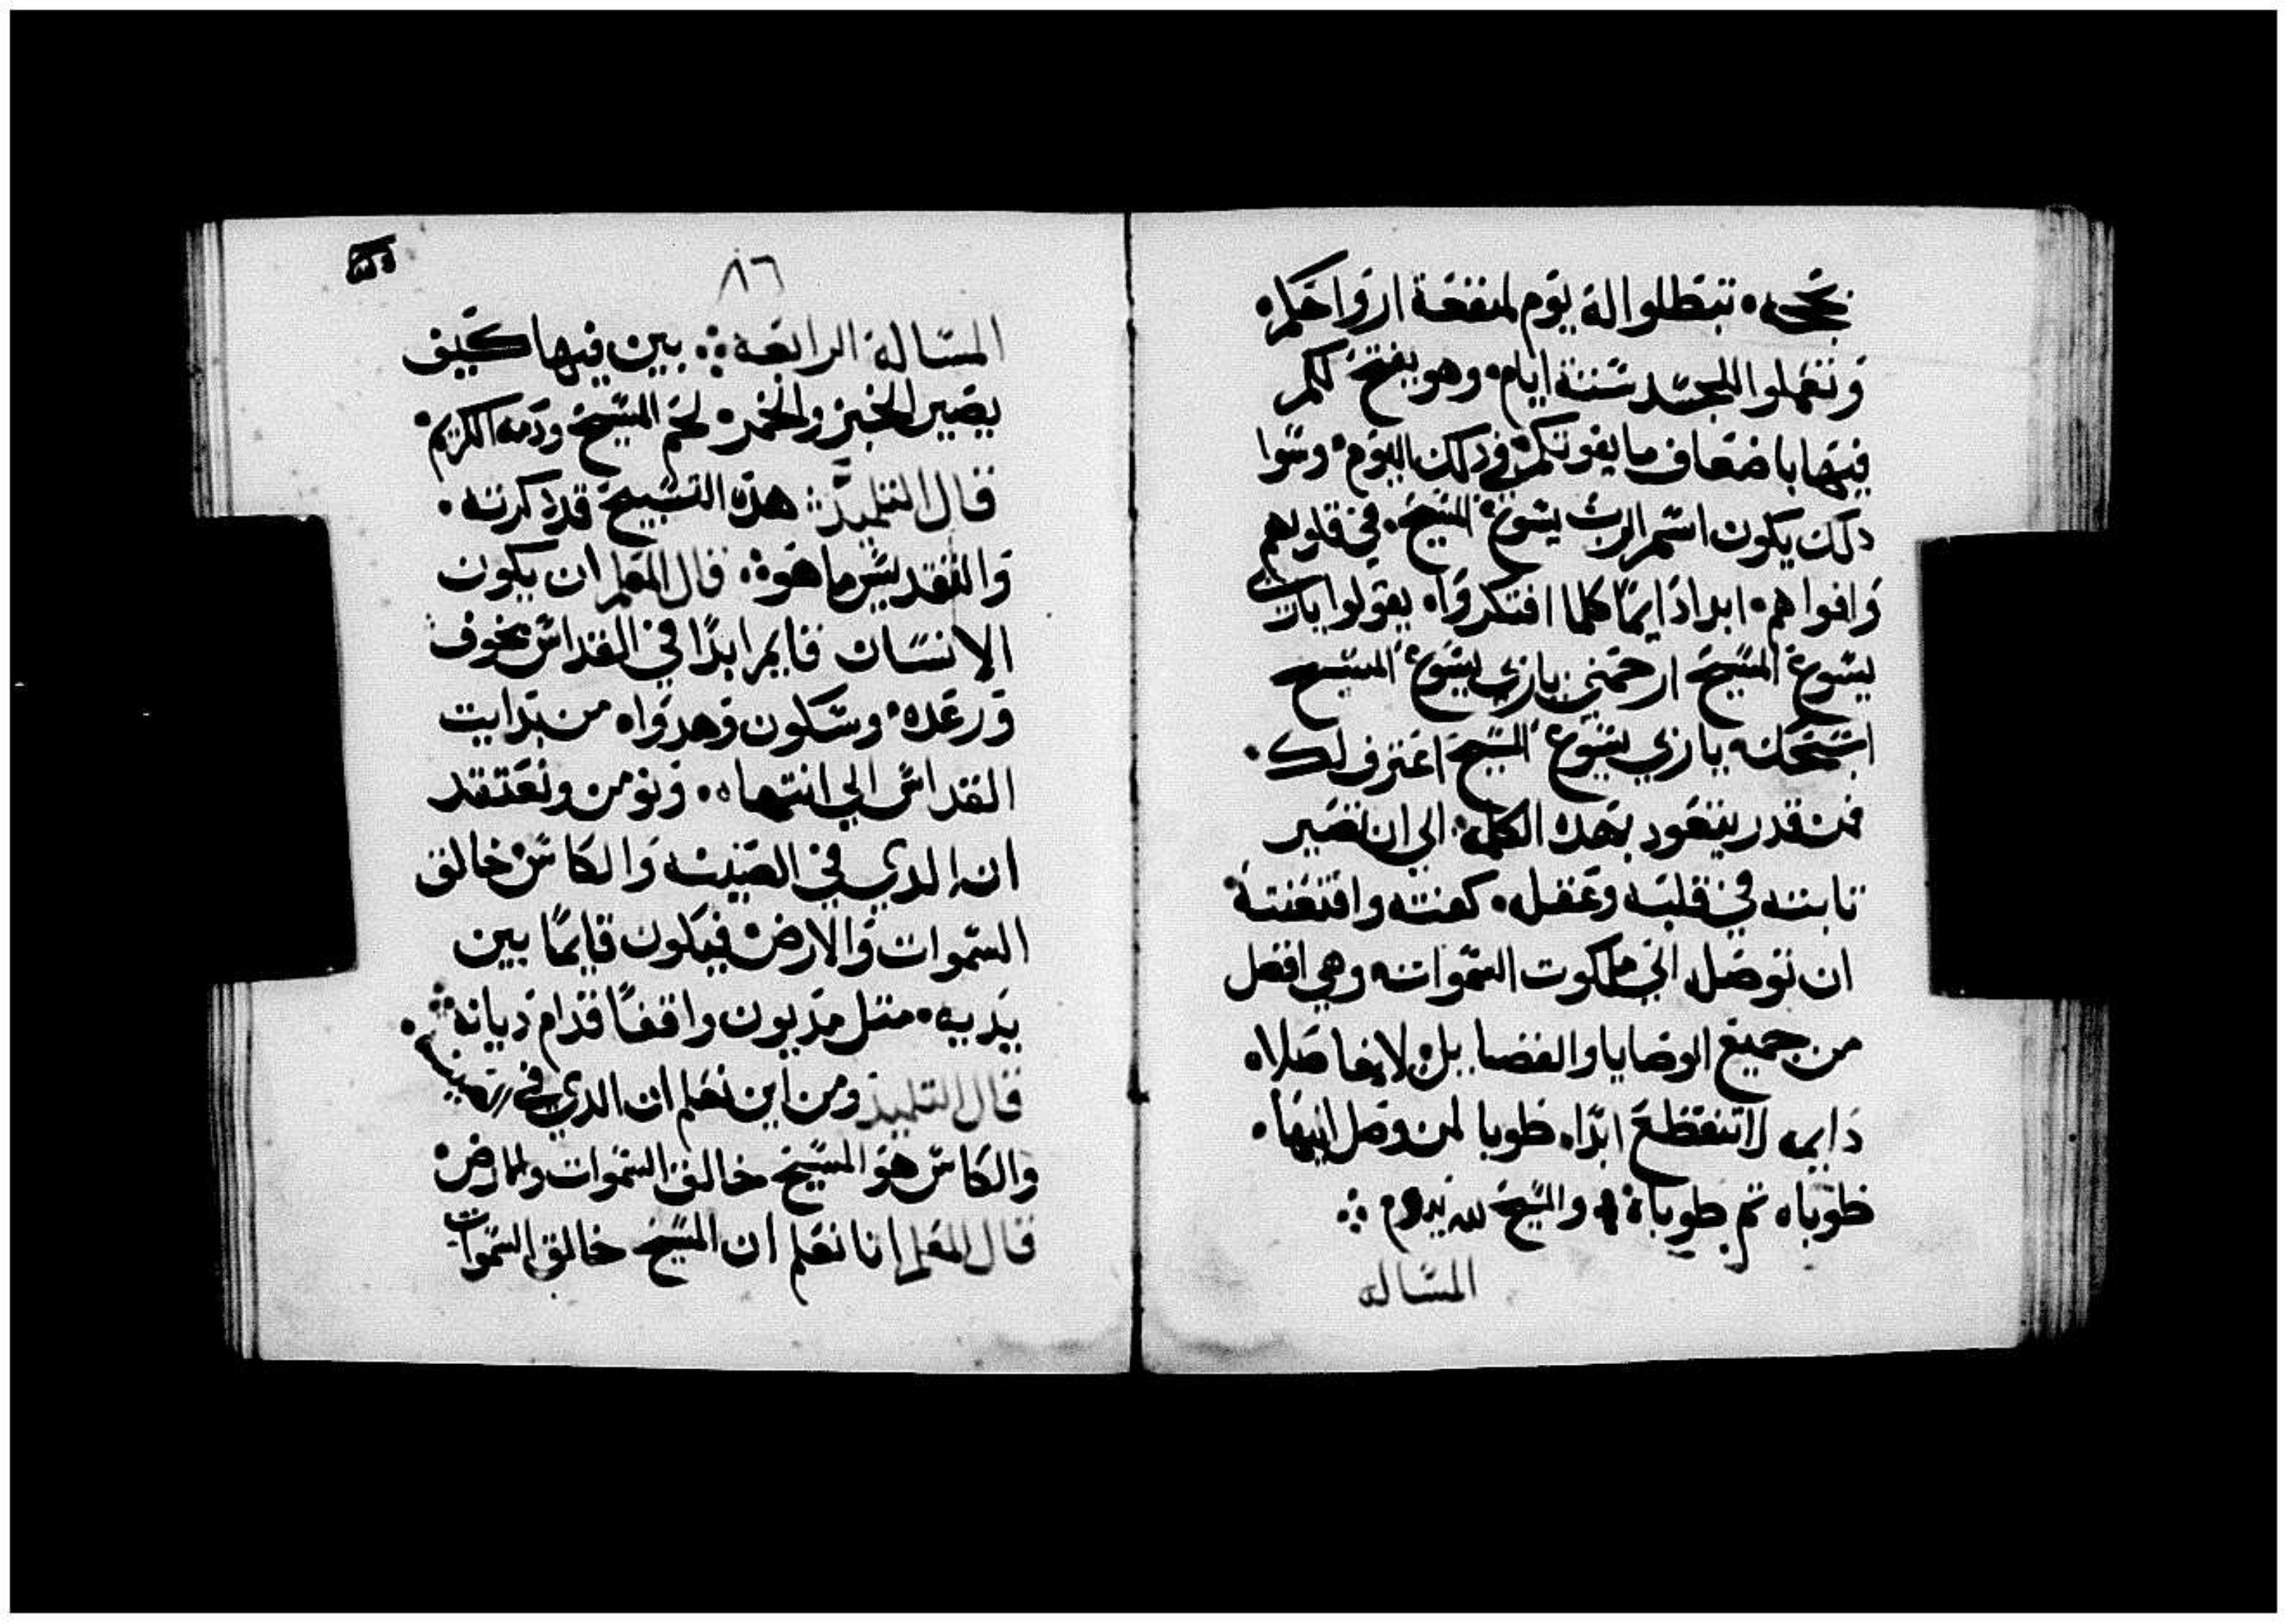 تبطلوا له يوم لمنفعة ارواحكم
وتعملوا للجسد ستة ايام وهو يفتح لكم
فيها باضعاف ما يفوتكم في دلك اليوم وسوا
دلك يكون اسم الرب يسوع المسيح في قلوبهم
وافواههم ابدا دايمًا كلما افتكروا يقولوا يارب
يسوع المسيح ارحمني ياربي يسوع المسيح
ياربي يسوع المسيح اعترف لك
فمن قدر يتعود بهده الكلمه الي ان تصير
تابته في قلبه وعقله كفته واقنعته
ان توصله الي ملكوت السموات وهي افضل
من جميع الوصايا والفضايل لانها صلاه
دايمه لا تنقطع ابدًا طوبا لمن وصل اليها
طوباه تم طوباه والمسيح لله يدوم
المساله
٨٦
المساله الرابعه بين فيها كيف
يصير الخبز والخمر لحم المسيح ودمه الكريم
قال التلميد هده التسبيح قد دكرته
والتقديس ما هو قال المعلم ان يكون
الانسان قايم ابدًا في القداس بخوف
ورعده وسكون وهدواه من بدايت
القداس الي انتهاه ونومن ونعتقد
ان الدي في الصينيه والكاس خالق
السموات والارض فيكون قايمًا بين
يديه متل مديون واقفًا قدام ديانه
قال التلميد ومن اين نعلم ان الدي في الصينيه
والكاس هو المسيح خالق السموات والارض
قال المعلم انا نعلم ان المسيح خالق السموات